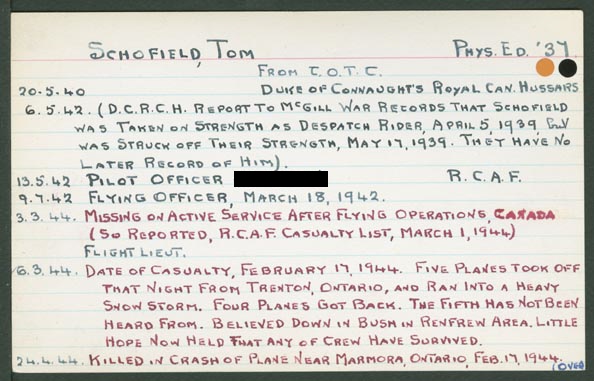 SCHOFIELD, TOM PHYS. ED. '37.
FROM C.O.T.C.
20-5.40 DUKE OF CONNAUGHT'S ROYAL CAN. HUSSARS
6.5.42. (D.C.R.C.H. REPORT TO MCGILL WAR RECORDS THAT SCHOFIELD
WAS TAKEN ON STRENGTH AS DESPATCH RIDER, APRIL 5, 1939
WAS STRUCK OFF THEIR STRENGTH, MAY 17, 1939. THEY HAVE NO
LATER RECORD OF HIM).
13.5.42 PILOT OFFICER R.C.A.F.
9.7.42 FLYING OFFICER, MARCH 18, 1942.
3.3.44. MISSING ON ACTIVE SERVICE AFTER FLYING OPERATIONS, CANADA
(SO REPORTED, R.C.A.F. CASUALTY LIST, MARCH 1, 1944)
FLIGHT LIEUT.
6.3.44. DATE OF CASUALTY, FEBRUARY 17, 1944. FIVE PLANES TOOK OFF
THAT NIGHT FROM TRENTON, ONTARIO, AND RAN INTO A HEAVY
SNOW STORM. FOUR PLANES GOT BACK. THE FIFTH HAS NOT BEEN
HEARD FROM. BELIEVED DOWN IN BUSH IN RENFREW AREA. LITTLE
HOPE NOW HELD THAT ANY OF CREW HAVE SURVIVED.
24.4.44. KILLED IN CRASH OF PLANE NEAR MARMORA, ONTARIO, FEB. 17, 1944.
(OVER)